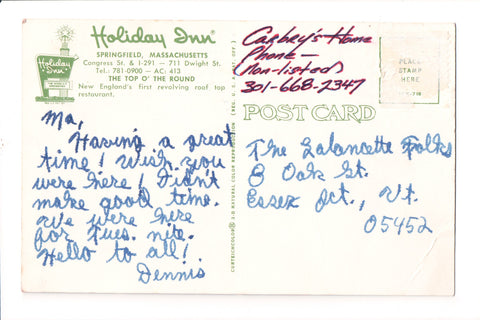 Holiday Inn®
SPRINGFIELD, MASSACHUSETTS
Congress St. & I-291 — 711 Dwight St.
Tel.: 781-0900 — AC: 413
THE TOP O' THE ROUND
New England's first revolving roof top
restaurant.
Holiday
Inn
Ma,
Having a great
time! Wish you
were here! Didn't
make good time.
We were here
for Tues. nite.
Hello to all!
Dennis
CURTEICHCOLOR® 3-D NATURAL COLOR REPRODUCTION (REG. U.S.A. PAT. OFF.)
Carbry's Home
Phone —
(non-listed)
301-668-2347
PLACE
STAMP
HERE
POST CARD
The Lalancette Folks
8 Oak St.
Essex Jct., Vt.
05452